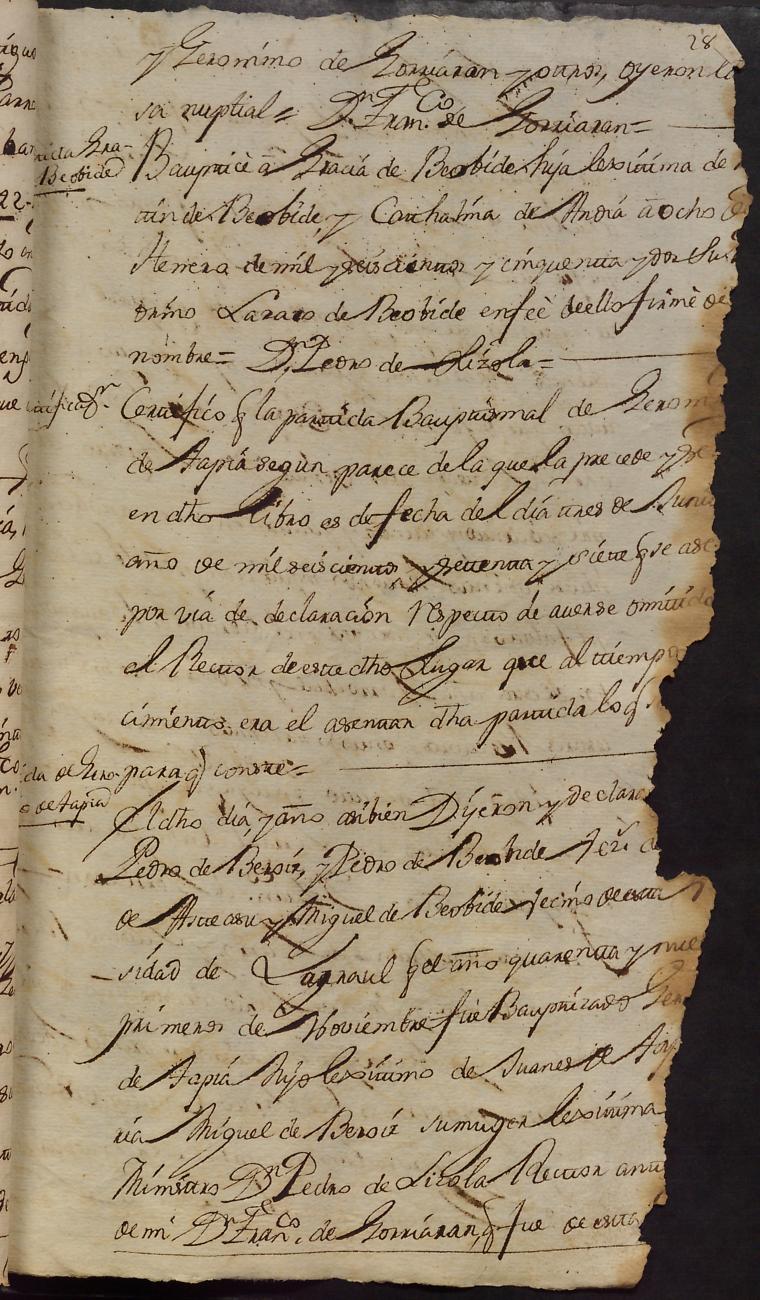 28
y Geronimo de Gorriaran y otros, oyeron la
sa nuptial = Dn Franco. de Gorriaran =
Gra-
Beobide
Bauptice a Gracia de Beobide hija lexitima de
tin de Beobide, y Cathalina de Andia a ocho de
Henero de mil y seiscientos y cinquenta y dos Su
drino Lazaro de Beobide en feè de ello firmè de
nombre = Dn Pedro de Lizola =
Certifico q la partida Bauptismal de Geronimo
de Tapia segun parece de la que la precede y
en dho libro es de fecha del dia tres de Junio
año de mil seiscientos y setenta y siete q se
por via de declaracion respecto de averse omitido
el Rector de este dho Lugar que al tiempo
cimiento era el asentar dha partida lo q
para q conste =
da de Gero-
o de Tapia
El dho dia, y año arriba Dijeron y declara
Pedro de Beroiz, y Pedro de Beobide
de Asteasu y Miguel de Beobide vecino de esta
sidad de Larraul q el año quarenta y nue
primeros de Noviembre fue Bauptizado Gero
de Tapia hijo lexitimo de Juanes de Tap
ria Miguel de Beroiz su muger lexitima
Ministro Dn Pedro de Lizola Rector ante
de mi Dn Franco. de Gorriaran, q fue de esta